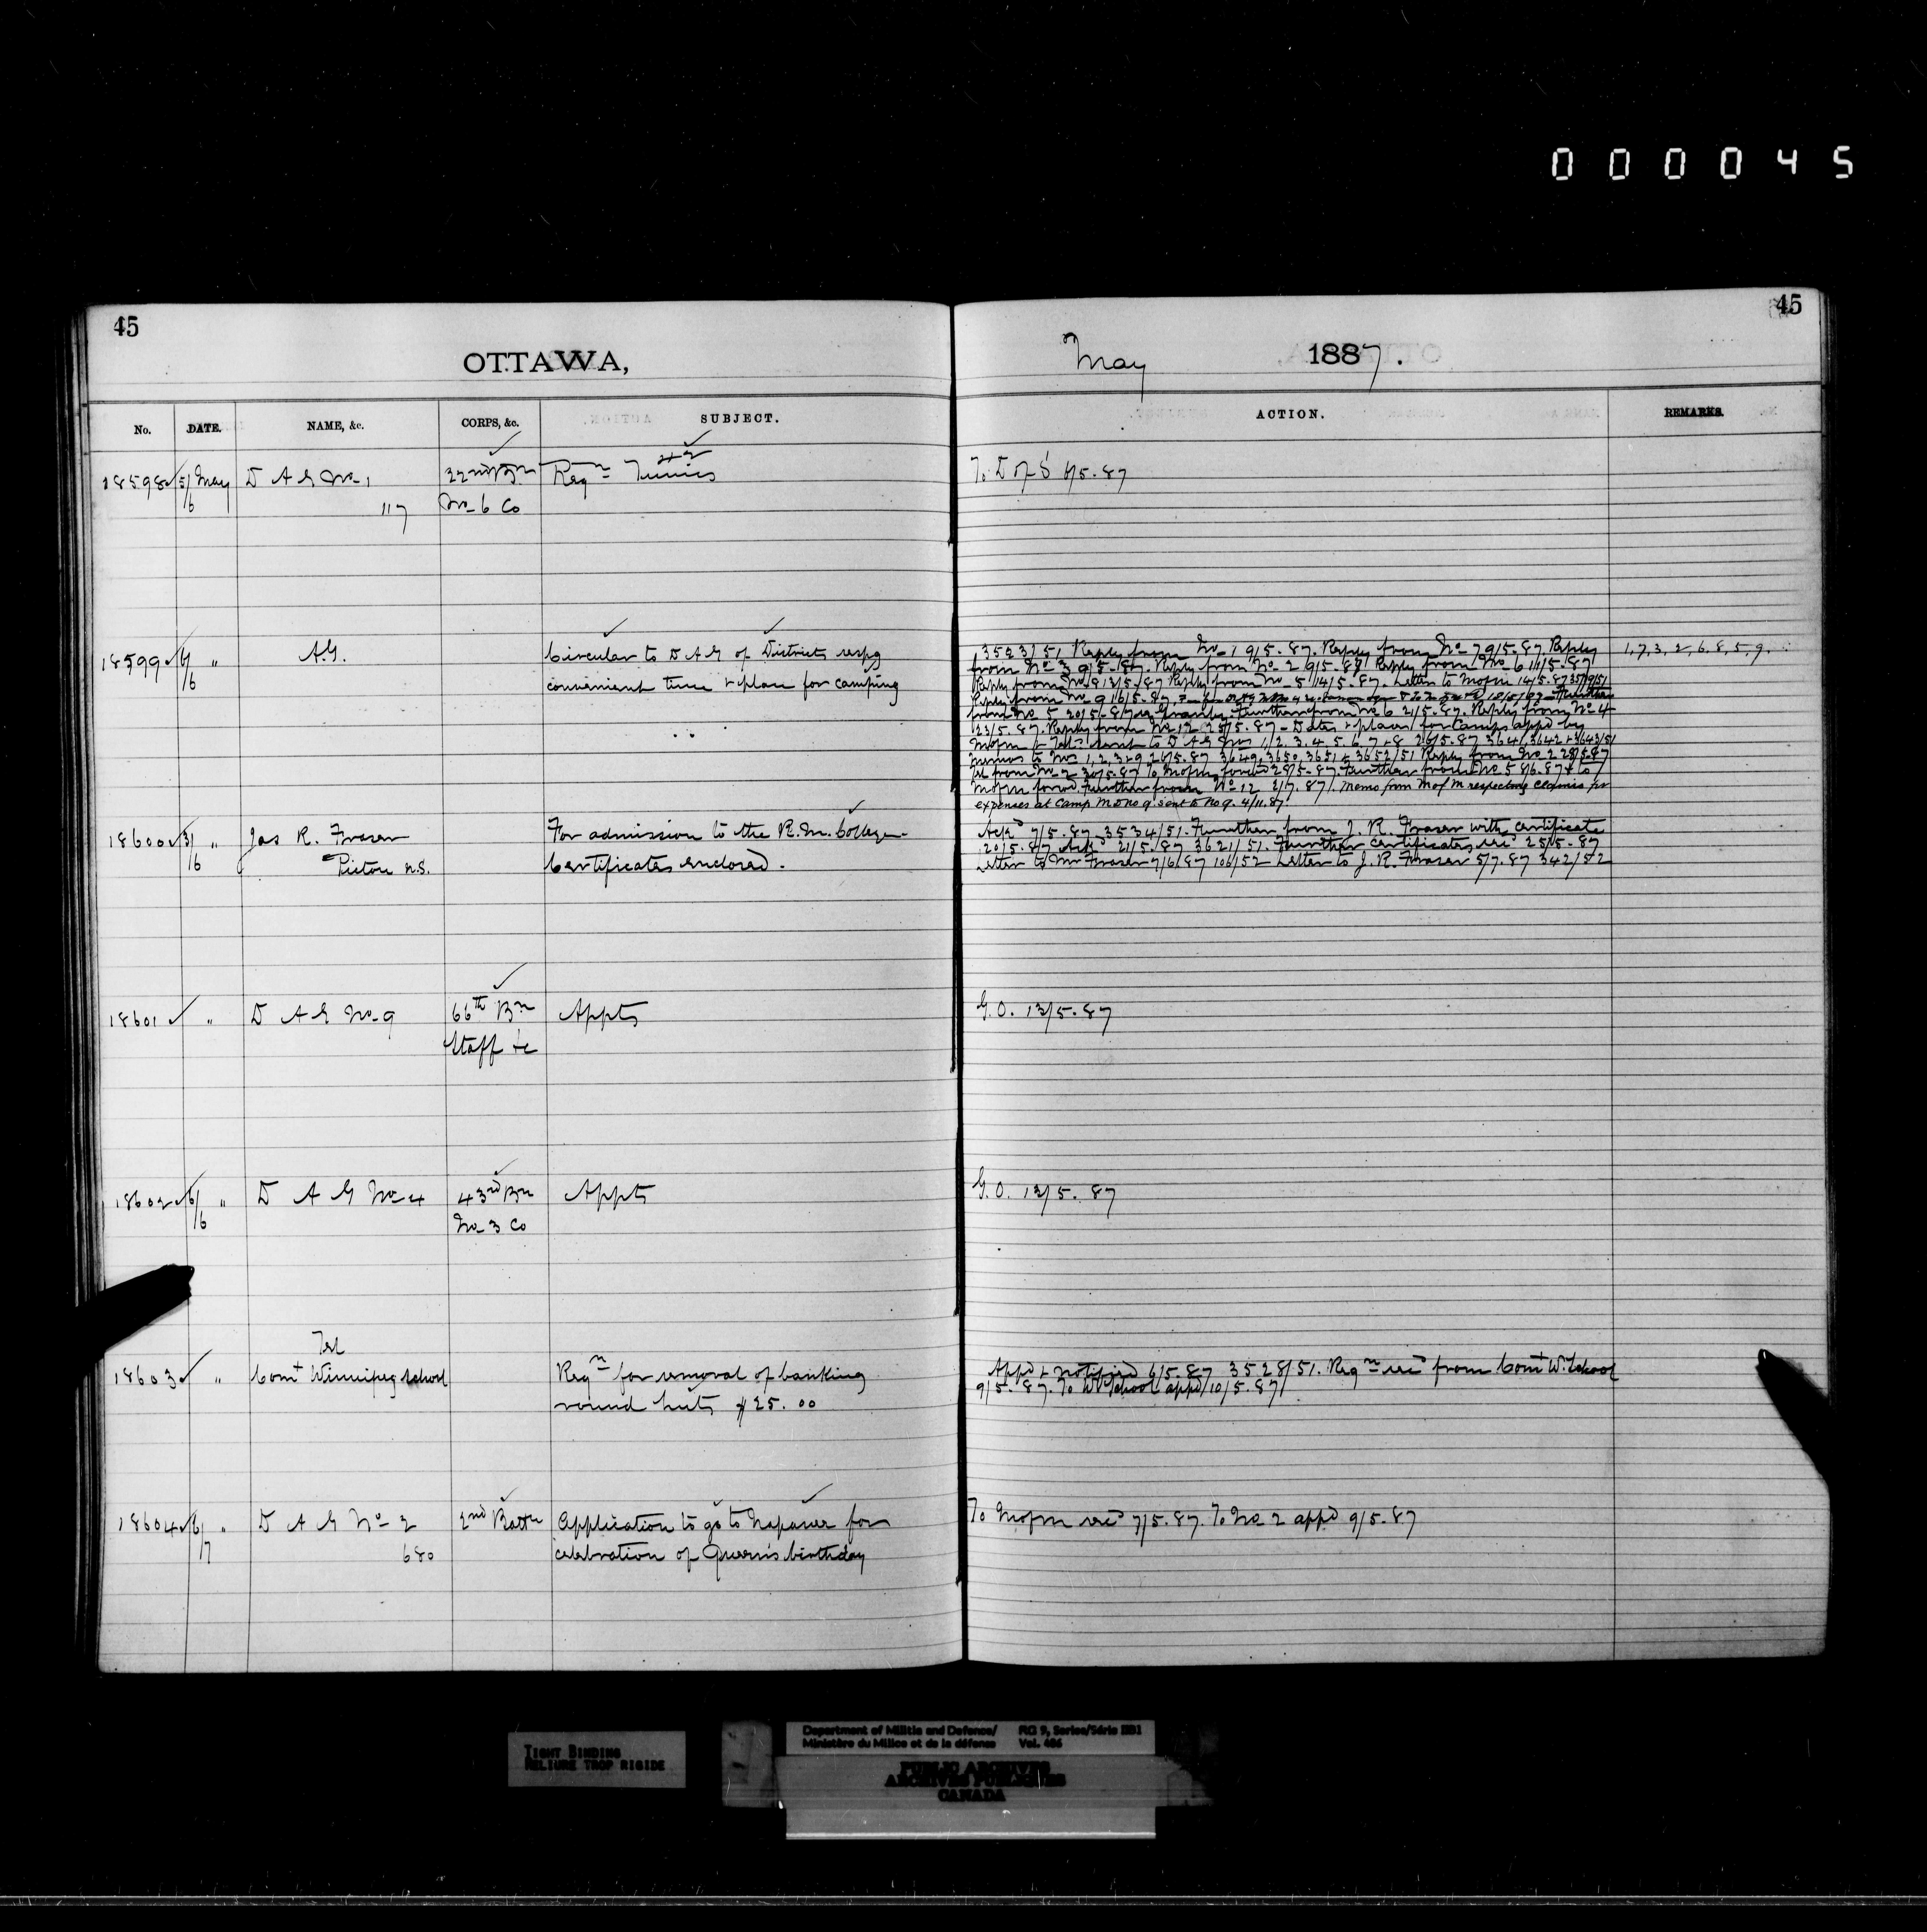 000045
45
45
OTTAWA,
May 1887.
No. DATE. NAME, &c. CORPS, &c. SUBJECT. ACTION. REMARKS.
18598 5/6 May D A G No. 1 32nd Bn Reqn Tunics To D of S 6/5.87
117 No 6 Co
18599 6/6 " A.G. Circular to D A G of Districts respg
convenient time & place for camping
3523/51 Reply from No 1 9/5.87. Reply from No 7 9/5.87. Reply 1, 7, 3, 2, 6, 8, 5, 9.
from No 3 9/5.87. Reply from No 2 9/5.87 Reply from No 6 11/5.87
Reply from No 8 13/5/87 Reply from No 5 14/5.87. Letter to MofM 14/5.87
Reply from No 9 16/5.87. Further
from No 5 20/5.87 Further from No 6 21/5.87. Reply from No 4
23/5.87. Reply from No 12 25/5.87 - Dates & places for Camps appd by
MofM & Tels sent to D A G Nos 1, 2. 3. 4. 5. 6 7 & 8 26/5.87 3641, 3642 & 3643/51
memos to Nos 1, 2, 3 & 9 26/5.87 3649, 3650, 3651 & 3652/51 Reply from No 2 28/5.87
Tel from No 2 30/5.87 To MofM forwd 28/5.87. Further from No. 5 8/6.87 & to
MofM forwd Further from No 12 2/7.87. Memo from M of M respecting claims for
expenses at Camp MD No 9. sent to No 9. 4/11.87.
18600 3/6 " Jas R. Fraser For admission to the R. M. College.
Pictou N.S. Certificates enclosed.
Ackd 7/5.87 3534/51. Further from J. R. Fraser with certificate
20/5.87 Ackd 21/5.87 3621/51. Further certificates recd 25/5.87
Letter to Mr Fraser 7/6/87 106/52 Letter to J. R. Fraser 5/7.87 342/52
18601 " D A G No 9 66th Bn Appts G.O. 13/5.87
Staff &c
18602 6/6 " D A G No 4 43rd Bn Appts G.O. 13/5.87
No 3 Co
Tel
18603 " Comt Winnipeg School Reqn for removal of banking
round huts $25.00
Appd & notified 6/5.87 3528/51. Reqn recd from Comt W. School
9/5.87. To W School appd 10/5.87
18604 6/7 " D A G No 2 2nd Battn Application to go to Napanee for To MofM recd 7/5.87. To No 2 appd 9/5.87
680 celebration of Queen's birthday
TIGHT BINDING
RELIURE TROP RIGIDE
Department of Militia and Defence/ RG 9, Series/Série IIB1
Ministère du Milice et de la défense Vol. 406
PUBLIC ARCHIVES
ARCHIVES PUBLIQUES
CANADA